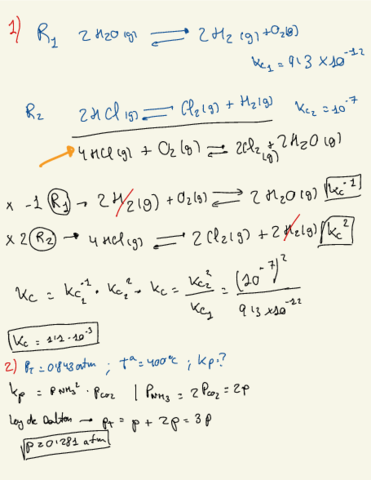 1) R₁ 2H₂O(g) ⇌ 2H₂(g) + O₂(g)
Kc₁ = 9'3 × 10⁻¹²
R₂ 2HCl(g) ⇌ Cl₂(g) + H₂(g) Kc₂ = 10⁻⁷
4HCl(g) + O₂(g) ⇌ 2Cl₂(g) + 2H₂O(g)
× -1 (R₁) → 2H₂(g) + O₂(g) ⇌ 2H₂O(g) Kc⁻¹
× 2 (R₂) → 4HCl(g) ⇌ 2Cl₂(g) + 2H₂(g) Kc²
Kc = Kc₂⁻¹ · Kc₂² → Kc = Kc₂² / Kc₁ = (10⁻⁷)² / 9'3×10⁻¹²
Kc = 1'1·10⁻³
2) Pt = 0'843 atm ; Tª = 400ºC ; Kp?
Kp = PNH₃² · PCO₂ | PNH₃ = 2PCO₂ = 2p
Ley de Dalton → Pt = p + 2p = 3p
p = 0'281 atm